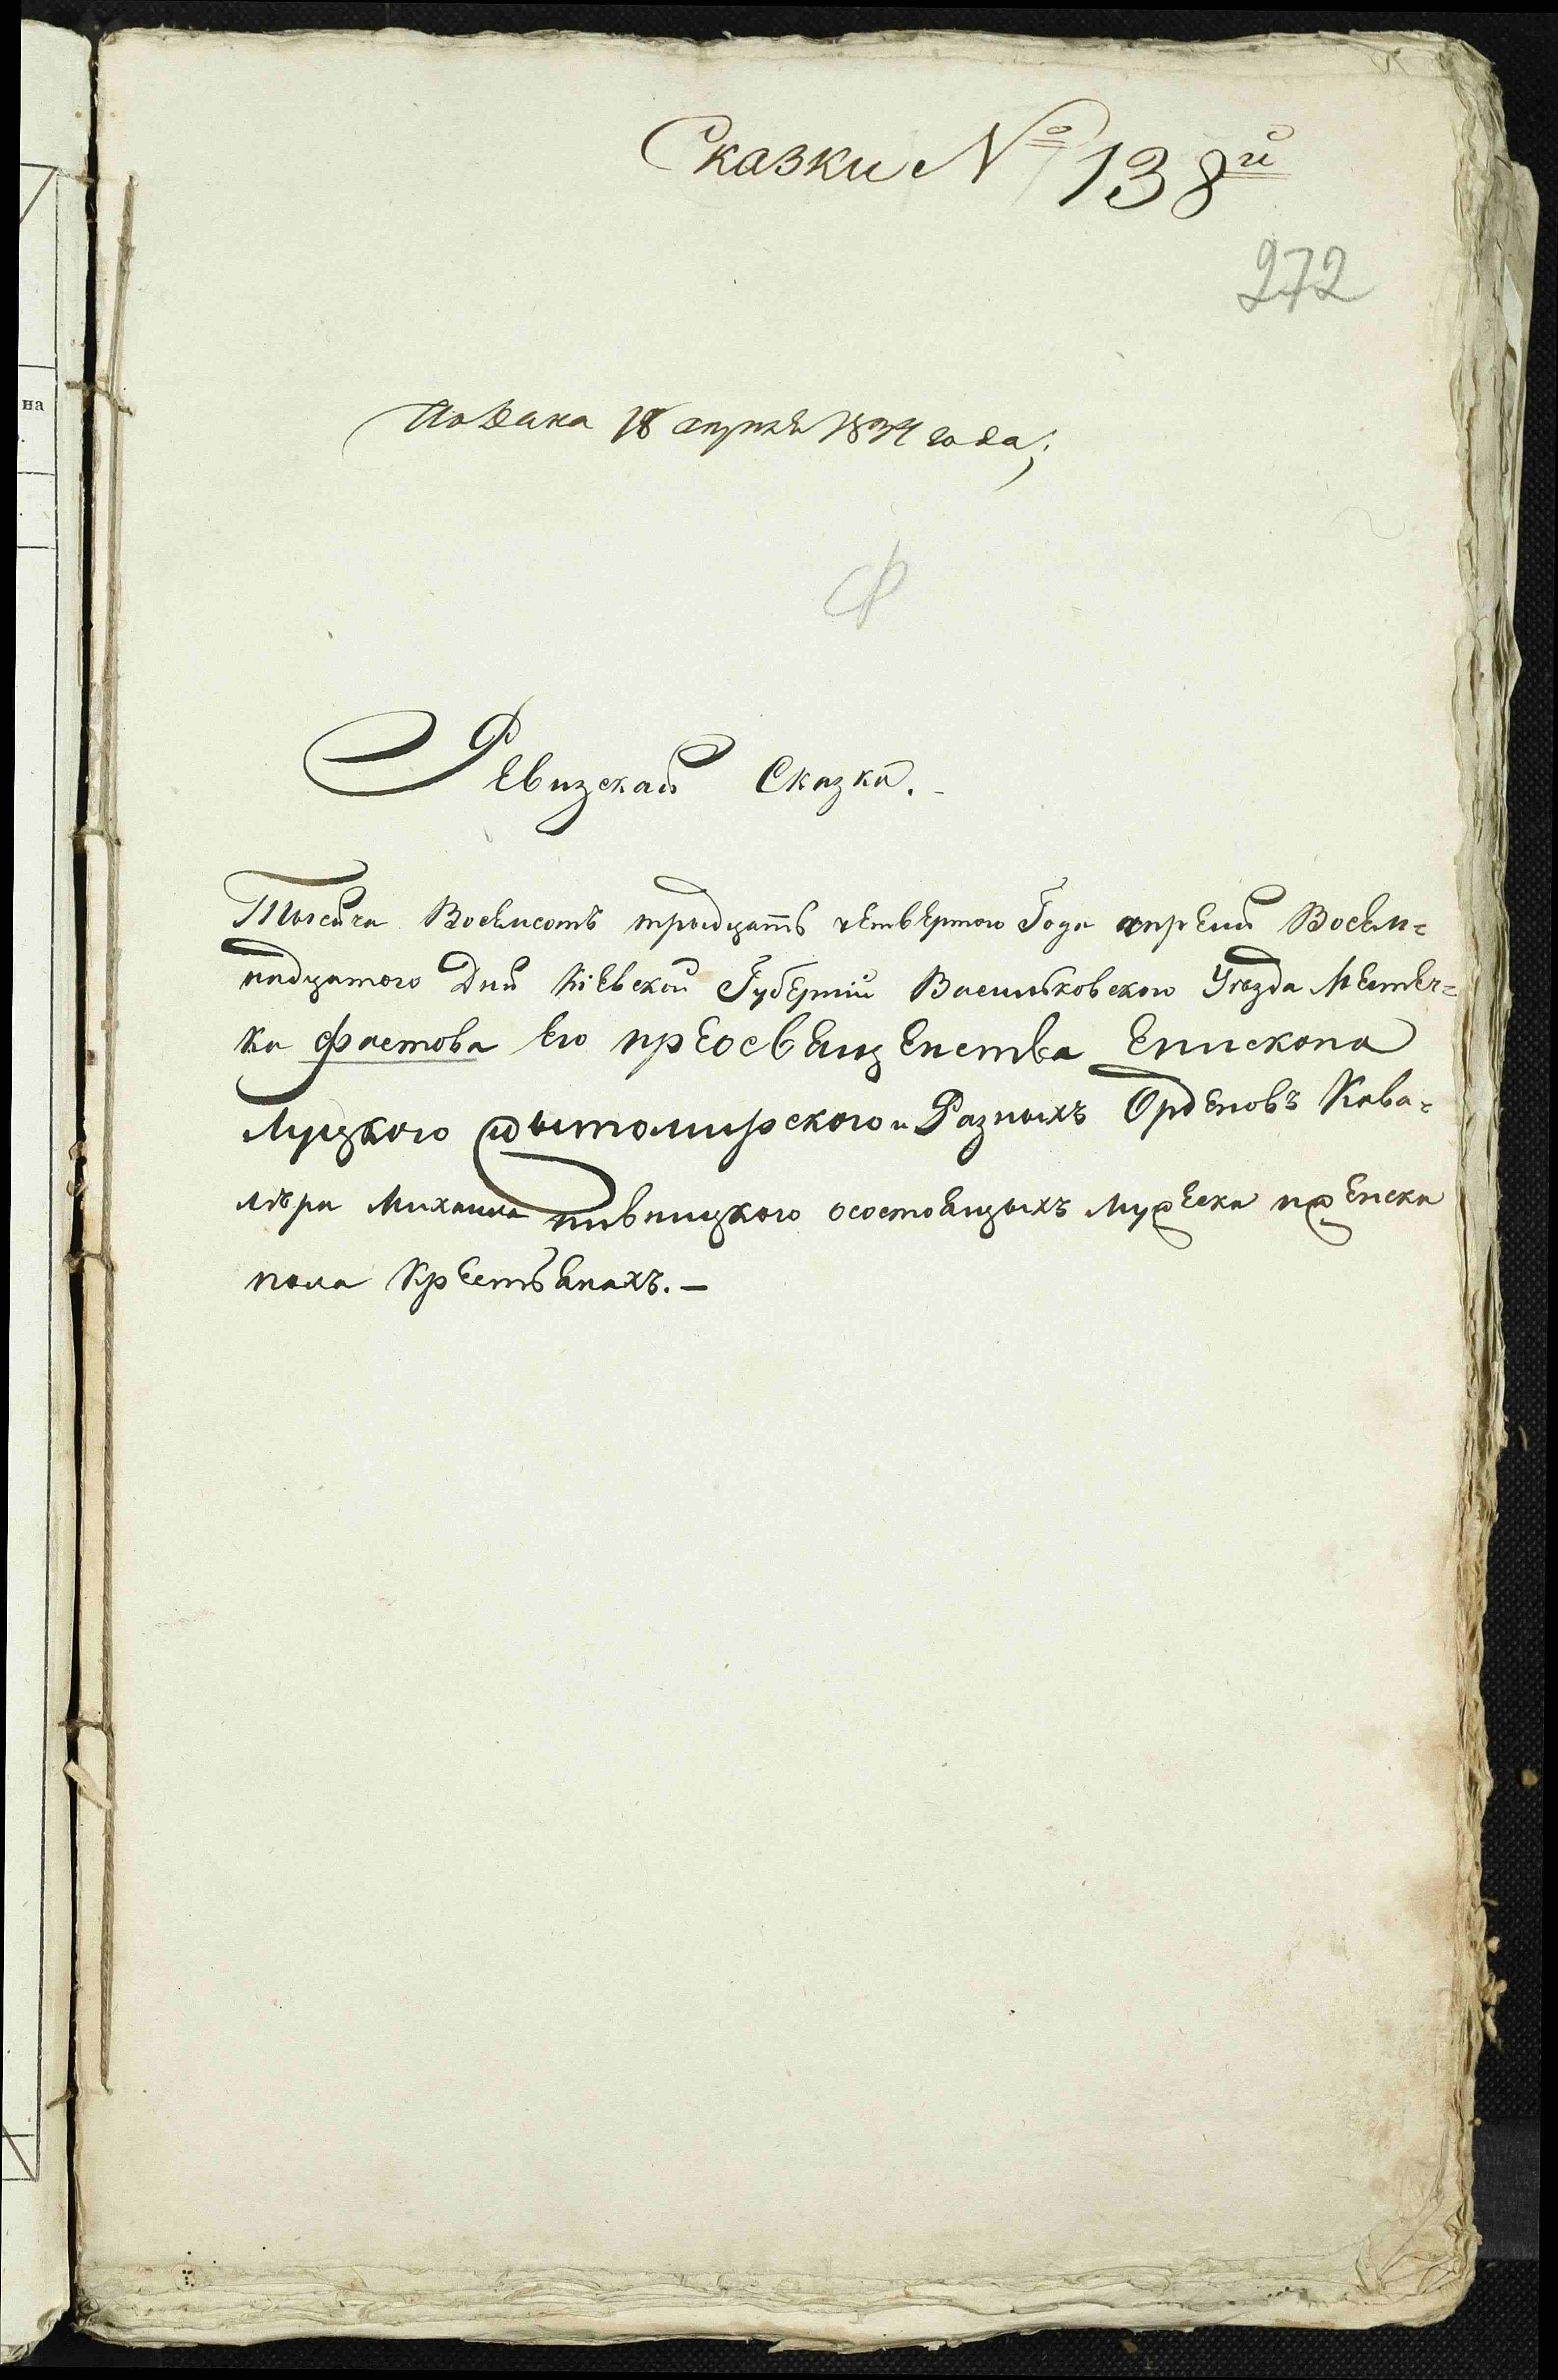 Сказки № 138й
272
на
Подана 18 апреля 1834 года;
Ф
Ревизская Сказка.
Тысяча Восемсотъ трыдцать четвертого Года апреля Восем=
надцатого Дня Кіевской Губерніи Васильковского Уезда Местеч=
ка Фастова Его преосвященства Епископа
Луцкого Жытомирского и Разныхъ Орденовъ Кава=
лѣра Михаила пивницкого осостоящыхъ мужеска иженска
пола Крестьянахъ.—